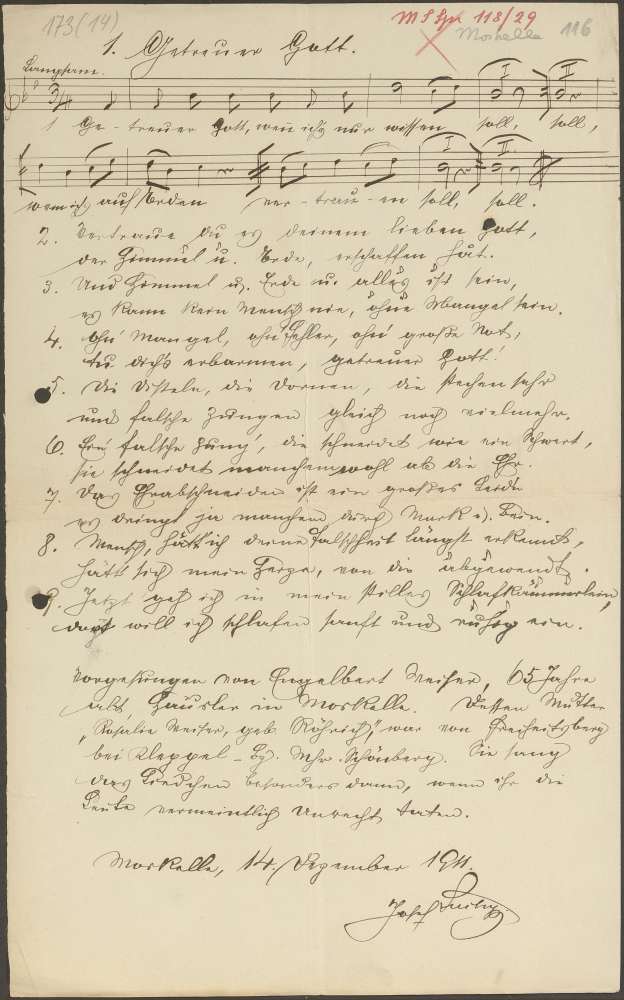 173 (14)
M S Spr 118/29
Moskelle 116
1. Getreuer Gott.
Langsam.
1 Ge-treuer Gott, wenn ichs nur wissen soll, soll,
wem ich auf Erden ver-trau-en soll, soll.
2. Vertraue du es deinem lieben Gott,
der Himmel u. Erde, erschaffen hat.
3. Und Himmel u. Erde u. alles ist sein,
es kann kein Mensch nie, ohne Mangel sein.
4. Ohn' Mangel, ohn' Fehler, ohn' große Not,
tu dich's erbarmen, getreuer Gott!
5. Die Disteln, die Dornen, die stechen sehr
und falsche Zungen gleich noch vielmehr.
6. Ein' falsche Zung', die schneidet wie ein Schwert,
sie schneidet manchem wohl ab die Ehr.
7. Das Ehrabschneiden ist ein großes
es dringt ja manchem durch Mark u. Bein.
8. Mensch, hätt ich deine Falschheit längst erkannt,
hätt sich mein Herze, von dir abgewendt.
9. Jetzt geh ich in mein stilles Schlafkämmerlein,
dort will ich schlafen sanft und ruhig ein.
Vorgesungen von Engelbert Weiser, 65 Jahre
alt Häusler in Moskelle. Dessen Mutter
"Rosalie Weiser, geb. Röhrich", war von Freiheitsberg
bei Kleppel - Bz. Mhr. Schönberg. Sie sang
das Liedchen besonders dann, wenn ihr die
Leute vermeintlich Unrecht taten.
Moskelle, 14. Dezember 1911.
Josef